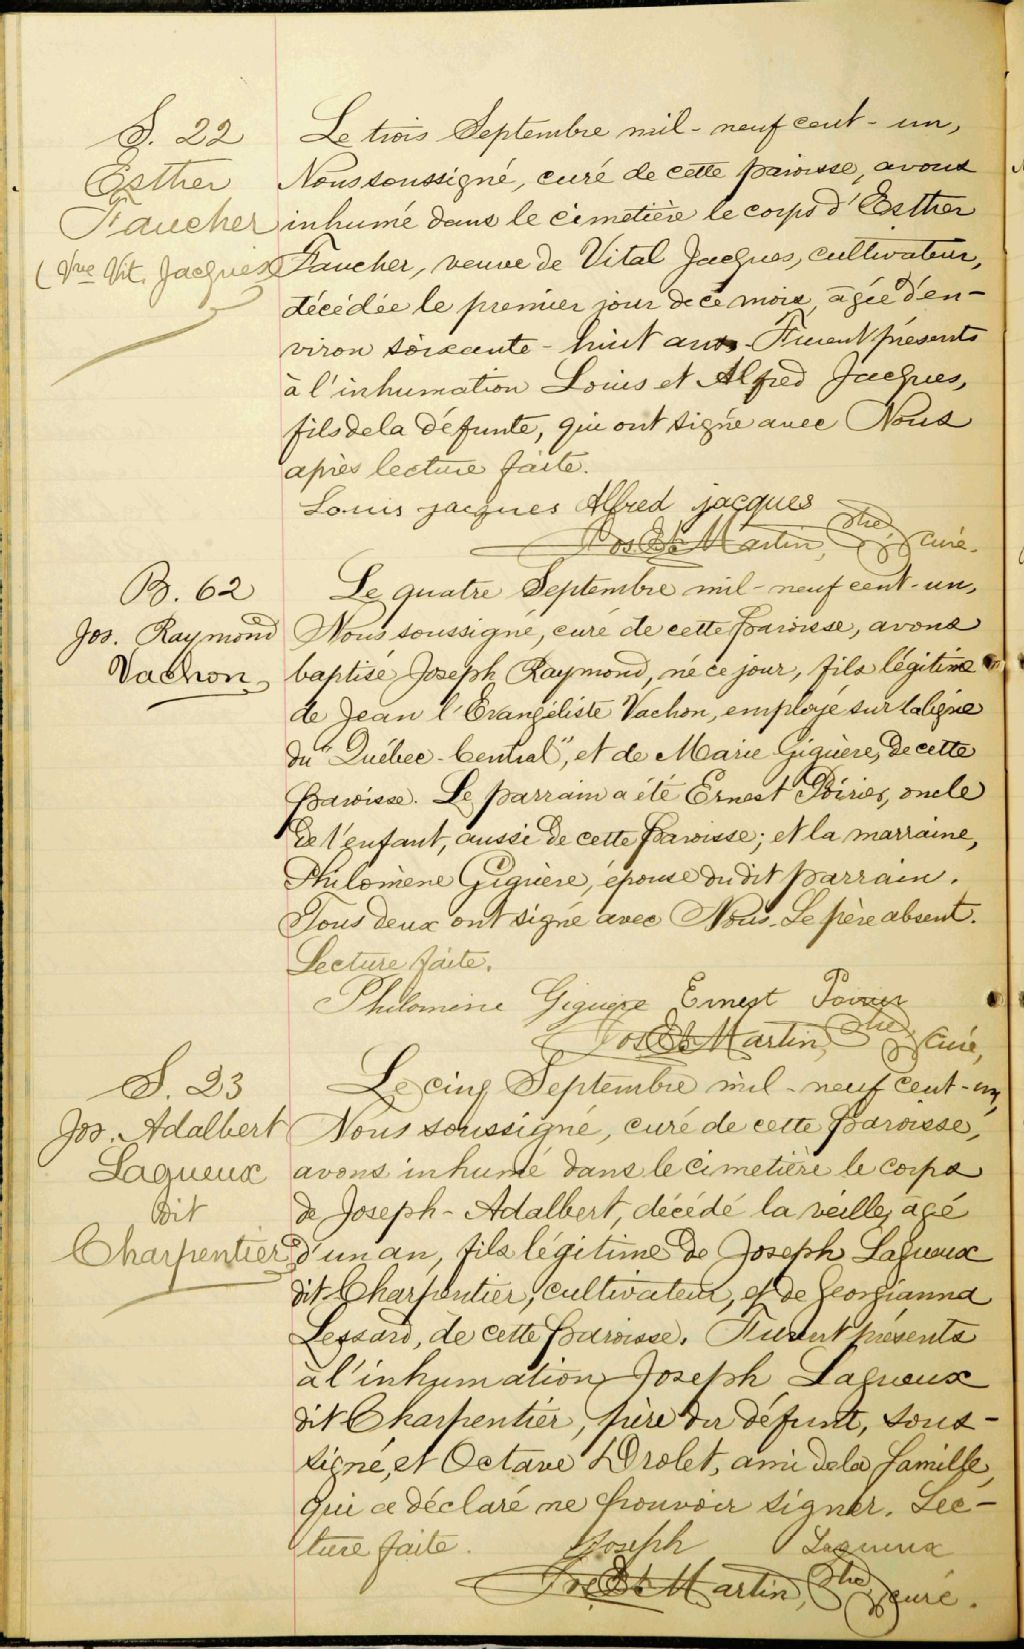 S. 22
Esther
Faucher
(Vve Vit. Jacques)
Le trois Septembre mil-neuf cent-un,
Nous soussigné, curé de cette paroisse, avons
inhumé dans le cimetière le corps d'Esther
Faucher, veuve de Vital Jacques, cultivateur,
décédée le premier jour de ce mois, âgée d'en-
viron soixante-huit ans. Furent présents
à l'inhumation Louis et Alfred Jacques,
fils de la défunte, qui ont signé avec Nous
après lecture faite.
Louis jacques Alfred jacques
Jos Et Martin, Ptre, curé.
B. 62
Jos. Raymond
Vachon
Le quatre Septembre mil-neuf cent-un,
Nous soussigné, curé de cette paroisse, avons
baptisé Joseph Raymond, né ce jour, fils légitime
de Jean l'Evangéliste Vachon, employé sur la ligne
du "Québec-Central", et de Marie Giguère, de cette
paroisse. Le parrain a été Ernest Poirier, oncle
de l'enfant, aussi de cette paroisse; et la marraine,
Philomène Giguère, épouse du dit parrain.
Tous deux ont signé avec Nous. Le père absent.
Lecture faite.
Philomine Giguère Ernest Poirier
Jos Et Martin, Ptre, curé,
S. 23
Jos. Adalbert
Lagueux
dit
Charpentier
Le cinq Septembre mil-neuf cent-un,
Nous soussigné, curé de cette paroisse,
avons inhumé dans le cimetière le corps
de Joseph-Adalbert, décédé la veille, âgé
d'un an, fils légitime de Joseph Lagueux
dit Charpentier, cultivateur, et de Georgianna
Lessard, de cette paroisse. Furent présents
à l'inhumation Joseph Lagueux
dit Charpentier, père du défunt, sous-
signé, et Octave Drolet, ami de la famille,
qui a déclaré ne pouvoir signer. Lec-
ture faite. Joseph Lagueux
Jos Et Martin, Ptre, curé.